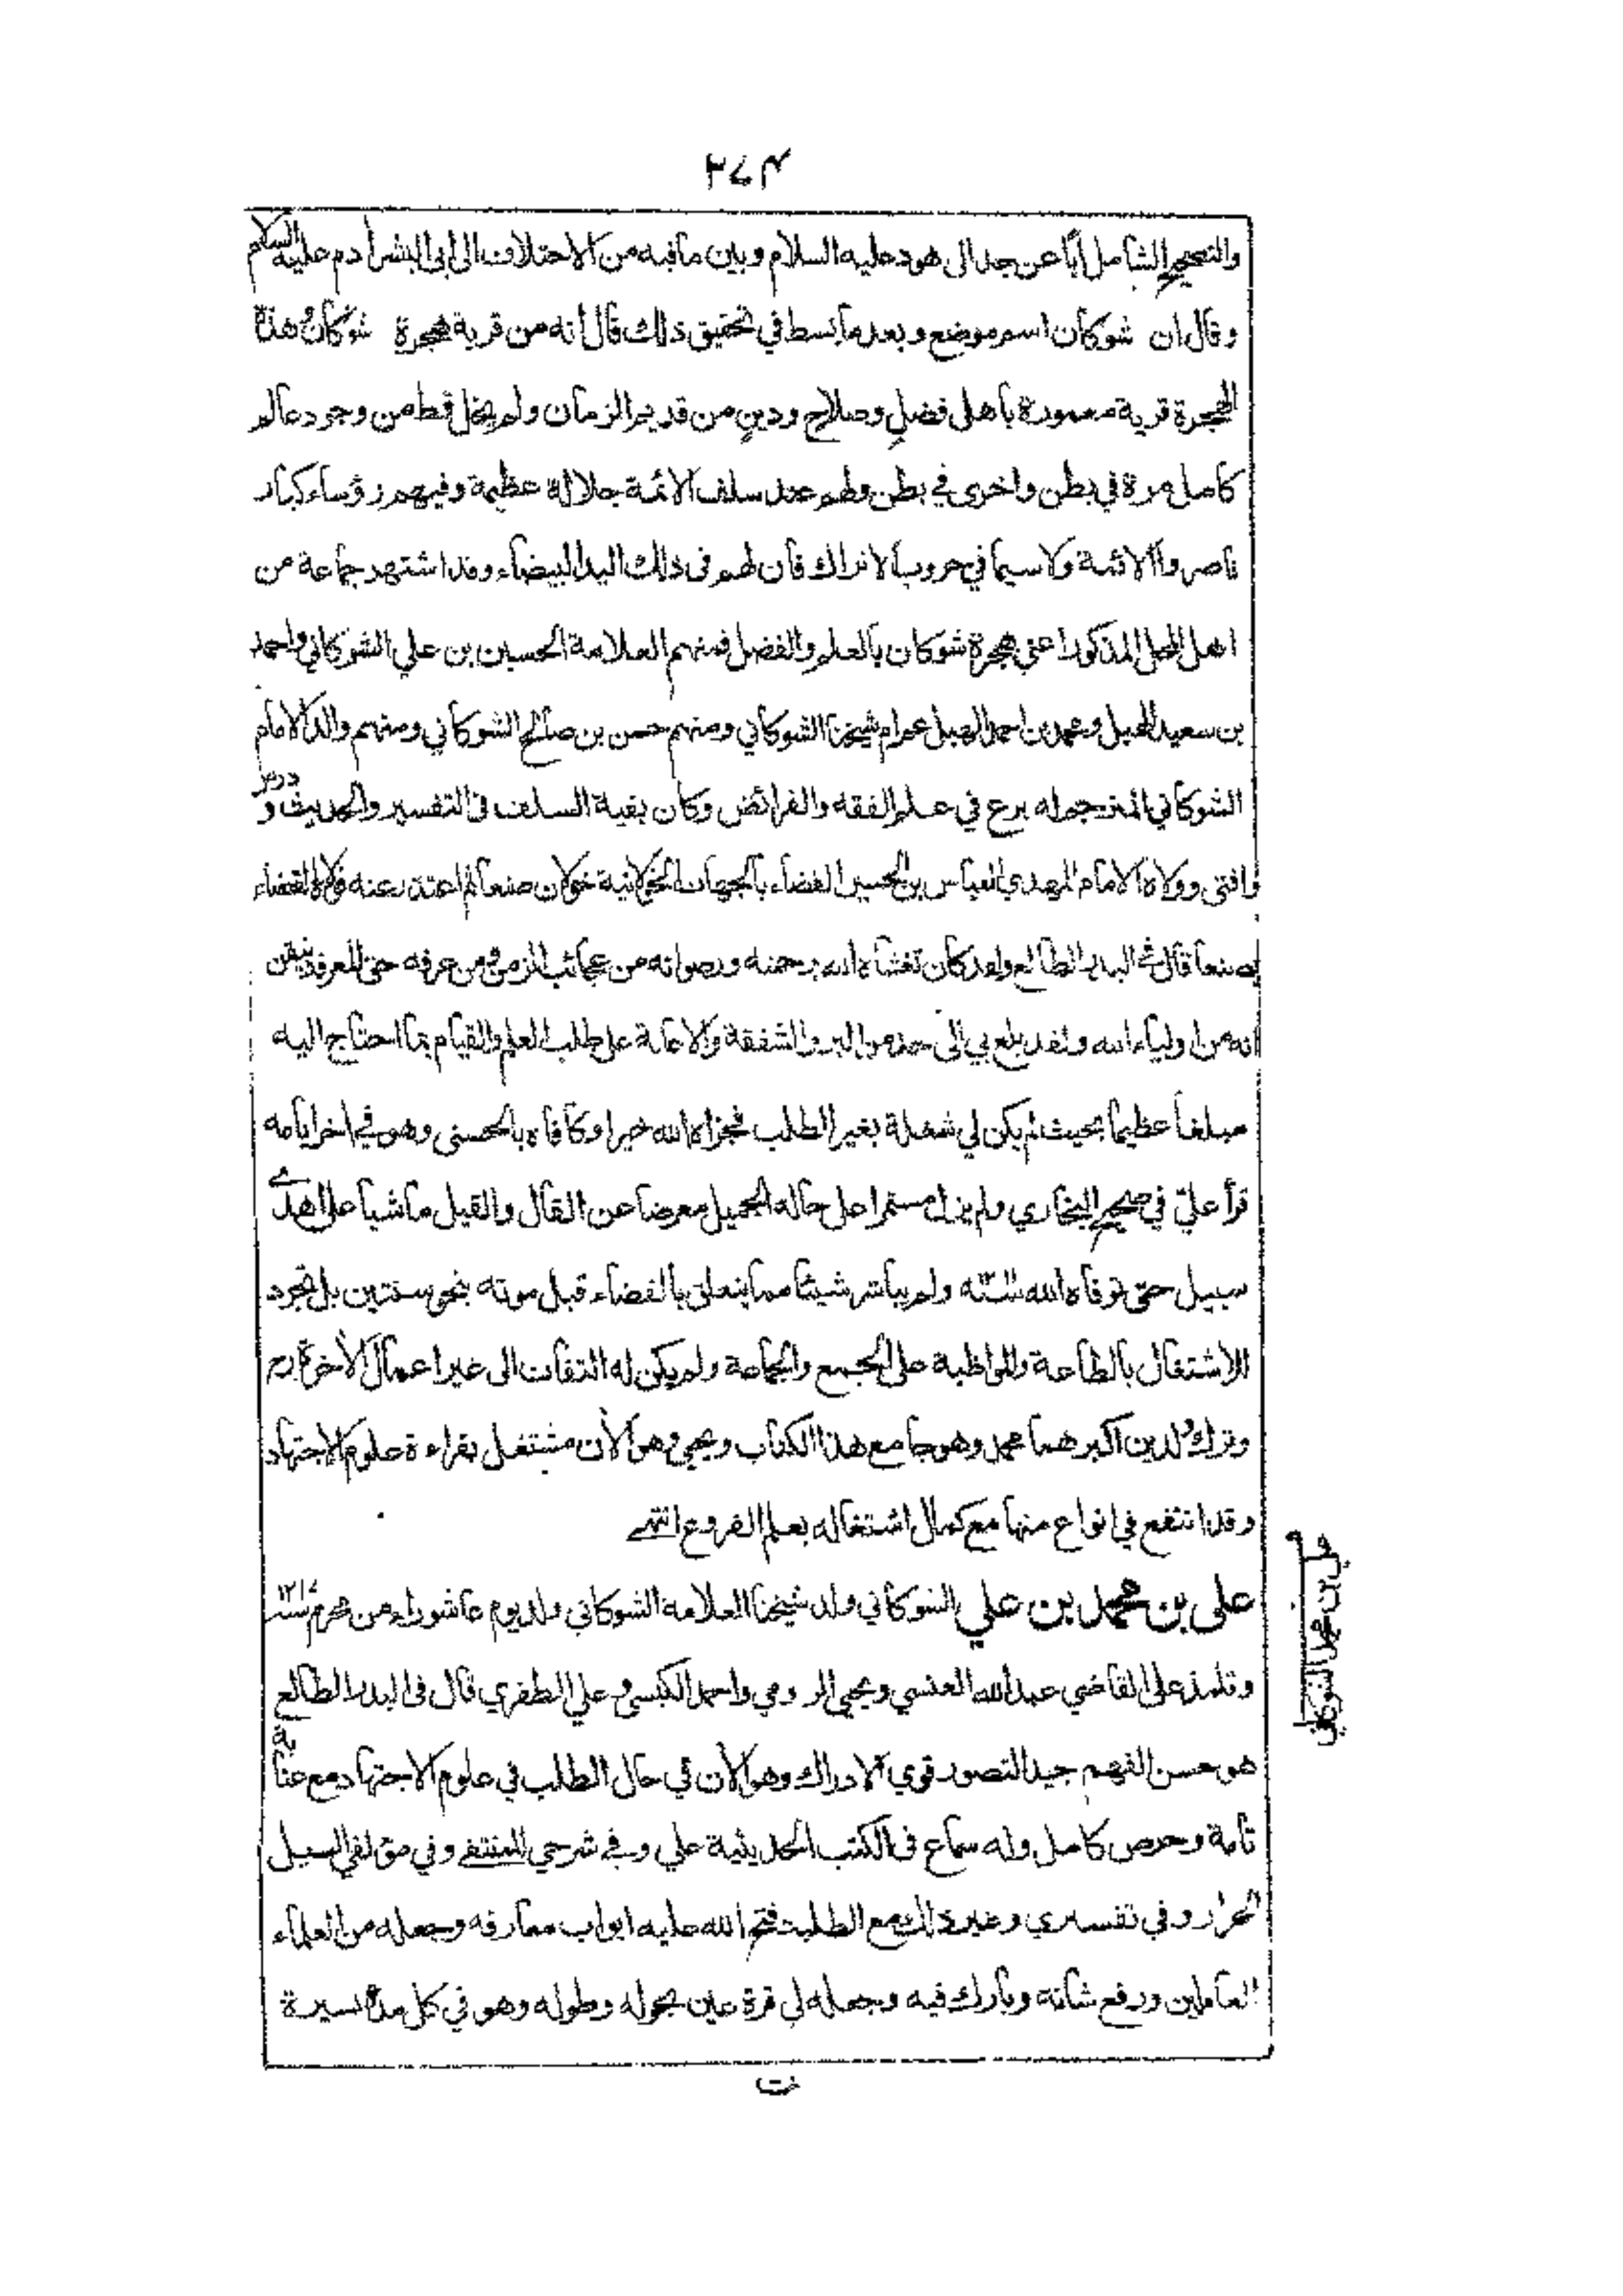 ٣٧٤
والتصحيح الشامل أبًا عن جد الى هود عليه السلام وبين ما فيه من الاختلاف الى ابى البشر أدم عليه السلام
وقال ان شوكان اسم موضع وبعد ما بسط في تحقيق ذلك قال انه من قرية هجرة شوكان وهذه
الهجرة قرية معمورة باهل فضلٍ وصلاح ودينٍ من قديم الزمان ولم يخل قط من وجود عالم
كامل مرة في بطن واخرى في بطن ولهم عند سلف الائمة جلالة عظيمة وفيهم رؤساء كبار
ناصروا الائمة ولا سيما في حروب الاتراك فان لهم فى ذلك اليد البيضاء وقد اشتهر جماعة من
اهل المحل المذكور اعني هجرة شوكان بالعلم والفضل فمنهم العلامة الحسين بن علي الشوكاني واحمد
بن سعيد الهبل ومحمد بن احمد الهبل عم ام شيخنا الشوكاني ومنهم حسن بن صالح الشوكاني ومنهم والد الامام
الشوكاني المترجم له برع في علم الفقه والفرائض وكان بقية السلف فى التفسير والحديث و درس
وافتى وولاه الامام المهدي العباس بن الحسين القضاء بالجهات الخولانية خولان صنعا ثم اعتذر عنه فولاه القضاء
بصنعا قال فى البدر الطالع ولقد كان تغشاه الله برحمته ورضوانه من عجائب الزمن ومن عرفه حق المعرفة تيقن
انه من اولياء الله ولقد بلغ بي الى حد من البر والشفقة والاعانة على طلب العلم والقيام بما احتاج اليه
مبلغا عظيما بحيث لم يكن لي شغلة بغير الطلب فجزاه الله خيرا وكافاه بالحسنى وهو في اخر ايامه
قرأ عليّ في صحيح البخاري ولم يزل مستمرا على حاله الجميل معرضا عن القال والقيل ماشيا على اهدى
سبيل حتى توفاه الله ولم يباشر شيئا مما يتعلق بالقضاء قبل موته بنحو سنتين بل تجرد
للاشتغال بالطاعة والمواظبة على الجمع والجماعة ولم يكن له التفات الى غير اعمال الأخرة
وترك ولدين اكبرهما محمد وهو جامع هذا الكتاب ويحيى وهو الأن مشتغل بقراءة علوم الاجتهاد
وقد انتفع في انواع منها مع كمال اشتغاله بعلم الفروع انتهى
على بن محمد بن علي الشوكاني ولد شيخنا العلامه الشوكاني ولد يوم عاشوراء من محرم سنة ١٢١٧
وتلمذ على القاضي عبد الله العنسي ويحيى الرومي واحمد الكبسي وعلي الظفري قال فى البدر الطالع
هو حسن الفهم جيد التصور قوي الادراك وهو الأن في حال الطلب في علوم الاجتهاد مع عناية
تامة وحرص كامل وله سماع فى الكتب الحديثية علي وفي شرحي للمنتقى وفي مؤلفي السيل
الجرار وفي تفسيري وغير ذلك مع الطلبة فتح الله عليه ابواب معارفه وجعله من العلماء
العاملين ورفع شانه وبارك فيه وجعله لي قرة عين بحوله وطوله وهو في كل مدة يسيرة
علي بن محمد الشوكاني